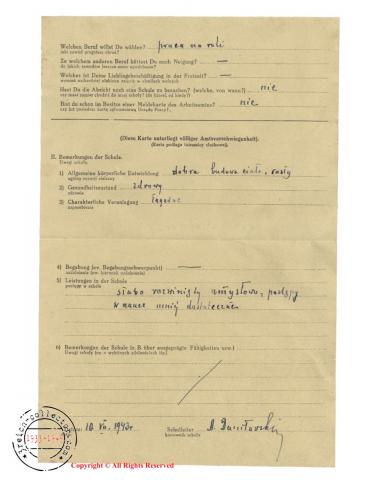 Welchen Beruf willst Du wählen? praca na roli
jaki zawód pragniesz obrać?
Zu welchem anderen Beruf hättest Du noch Neigung? —
do jakich zawodów jeszcze masz upodobanie?
Welches ist Deine Lieblingsbeschäftigung in der Freizeit? —
wymień ulubieńsze zajęcia w chwilach wolnych
Hast Du die Absicht noch eine Schule zu besuchen? (welche, von wann?) nie
czy masz zamiar chodzić do innej szkoły? (do której, od kiedy?)
Bist du schon im Besitze einer Meldekarte des Arbeitsamtes? nie
czy już posiadasz kartę zgłoszeniową Urzędu Pracy?
(Diese Karte unterliegt völliger Amtsverschwiegenheit).
(Karta podlega tajemnicy służbowej).
II. Bemerkungen der Schule.
Uwagi szkoły.
1) Allgemeine körperliche Entwicklung dobra budowa ciała, rosły
ogólny rozwój cielesny
2) Gesundheitszustand zdrowy
zdrowie
3) Charakterliche Veranlagung łagodne
usposobienie
4) Begabung (ev. Begabungsschwerpunkt) —
uzdolnienie (ew. kierunek uzdolnienia)
5) Leistungen in der Schule
postępy w szkole
słabo rozwinięty umysłowo, postępy
w nauce mniej dostateczne
6) Bemerkungen der Schule (z. B. über ausgeprägte Fähigkeiten usw.)
Uwagi szkoły (np. o wybitnych zdolnościach itp.)
10. VII. 1943 r.
Schulleiter
kierownik szkoły
3reich-collector.com
1933-1945
Copyright © All Rights Reserved